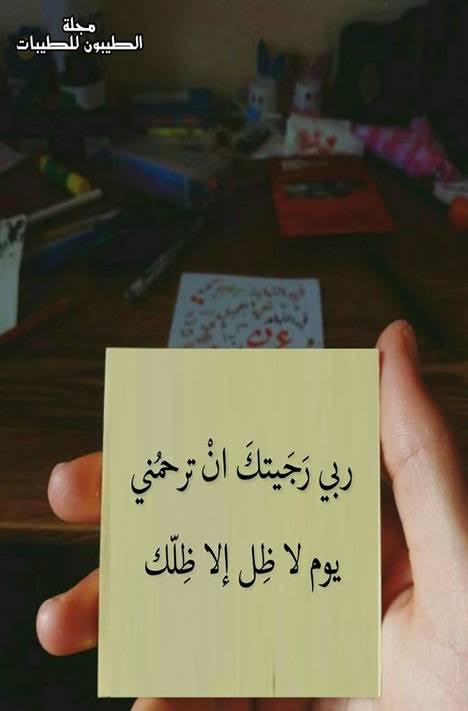 مجلة
الطيبون للطيبات
ربي رَجَيتكَ انْ ترحمُني
يوم لا ظِل إلا ظِلّك